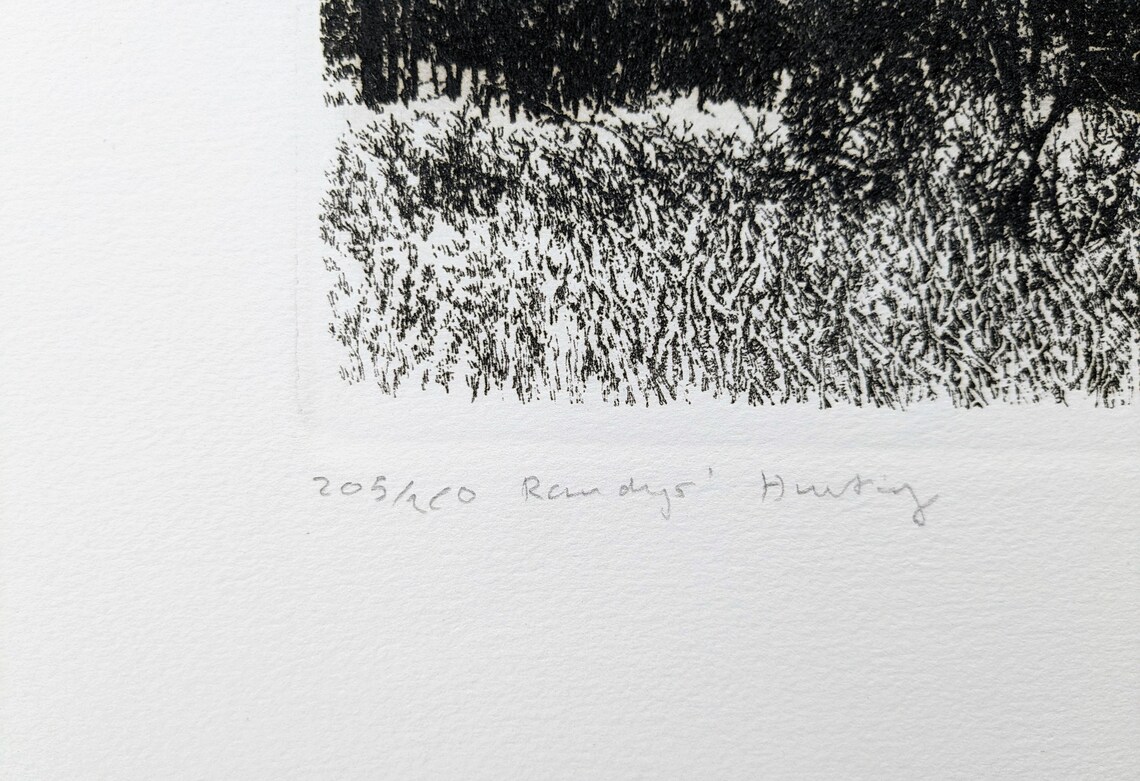 205/260 Randys' Hunting